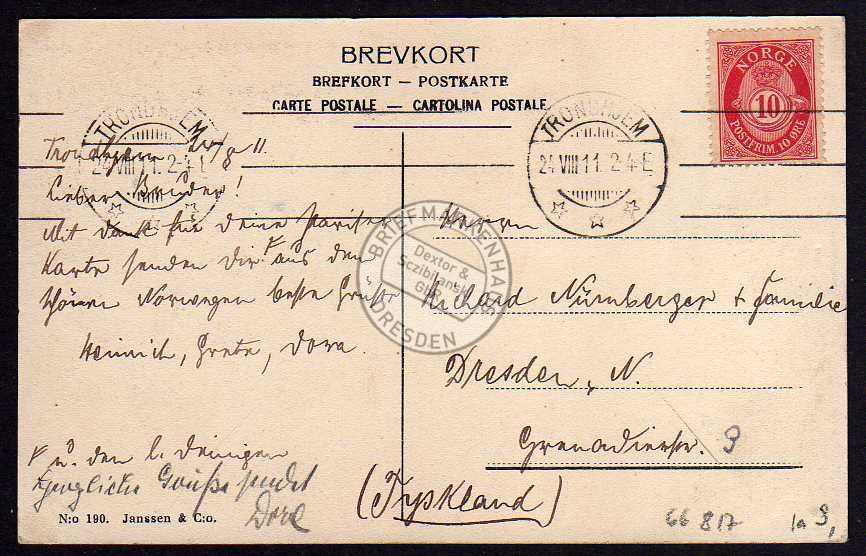 BREVKORT
BREFKORT — POSTKARTE
CARTE POSTALE — CARTOLINA POSTALE
NORGE
10
POSTFRIM. 10 ØRE
TRONDHJEM
24 VIII 11. 2-4 E
TRONDHJEM
24 VIII 11. 2-4 E
Trondhjem 24/8 11.
Lieber Bruder!
Mit Dank für Deine Pariser
Karte senden Dir ꜰ aus dem
schönen Norwegen beste Grüße
Heinrich, Grete, Dora.
u. den l. Deinigen
Herzliche Grüße sendet
Dora
N:o 190. Janssen & C:o.
Herrn
Richard Nürnberger + Familie
Dresden, N.
Grenadierstr. 9
(Tyskland)
66 817
1a 9,
BRIEFMARKENHAUS
Dextor &
Sczibilanski
GbR
DRESDEN